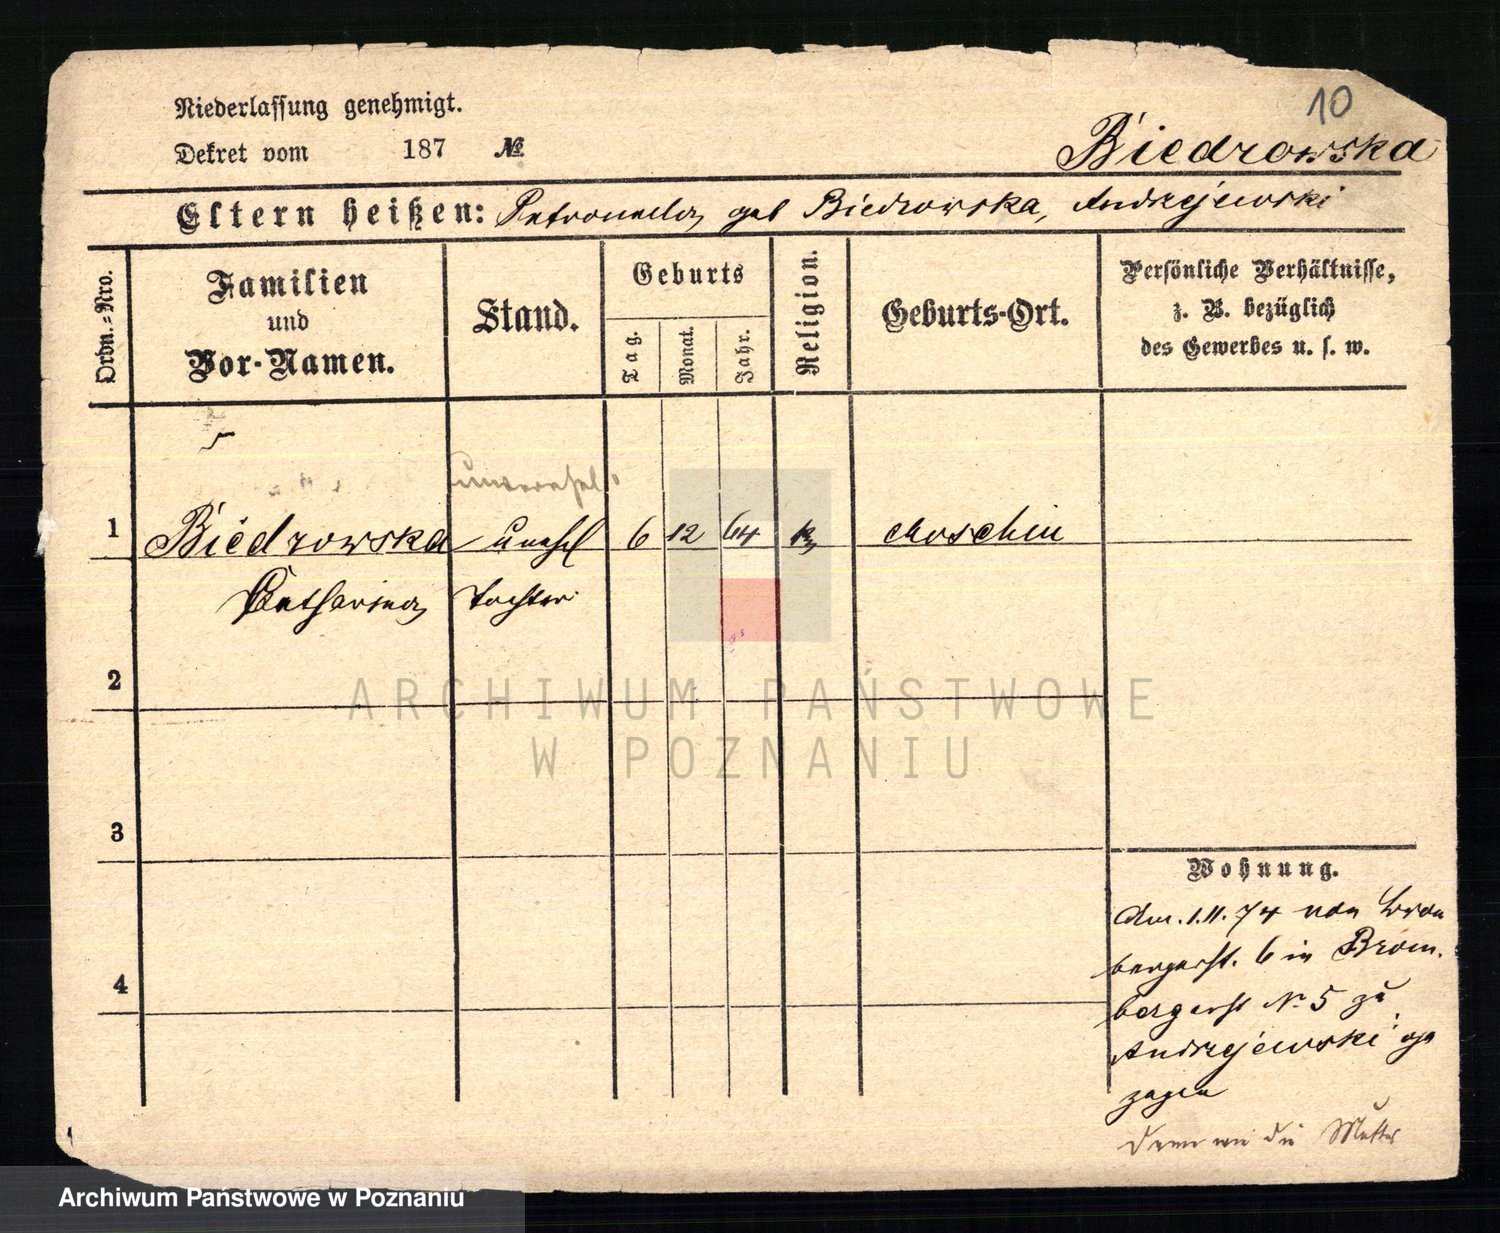 10
Niederlassung genehmigt.
Dekret vom 187 №
Biedrowska
Eltern heißen: Petronella geb Biedrowska, Andrzejewski
Ordn.-Nro.
Familien
und
Vor-Namen.
Stand.
Geburts
Tag.
Monat.
Jahr.
Religion.
Geburts-Ort.
Persönliche Verhältnisse,
z. B. bezüglich
des Gewerbes u. s. w.
1 Biedrowska unehl 6 12 64 k Moschin
Catharina Tochter
2
3
4
Wohnung.
Am. 1.11.74 von Brom
bergerst. 6 in Brom.
bergerst № 5 zu
Andrzejewski ge
zogen
wie die Mutter
ARCHIWUM PAŃSTWOWE
W POZNANIU
Archiwum Państwowe w Poznaniu